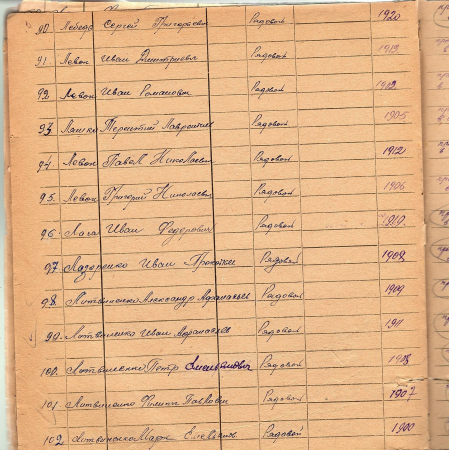 90. Лебедь Сергей Григорьевич Рядовой 1920
91 Левон Иван Дмитриевич Рядовой 1919
92 Левон Иван Романович Рядовой
93 Машко Терентий Рядовой 1905
94. Левон Павел Николаевич Рядовой 1912
95. Левон Григорий Николаевич Рядовой 1906
96. Лага Иван Федорович Рядовой 1919
97. Лазоренко Иван Рядовой 1908
98. Литвиненко Александр Афанасьев Рядовой 1909
99. Литвиненко Иван Афанасьев Рядовой 1911
100. Литвиненко Петр Рядовой
101. Литвиненко Филипп Павлович Рядовой 1907
102 Литвиненко Марк Рядовой 1900